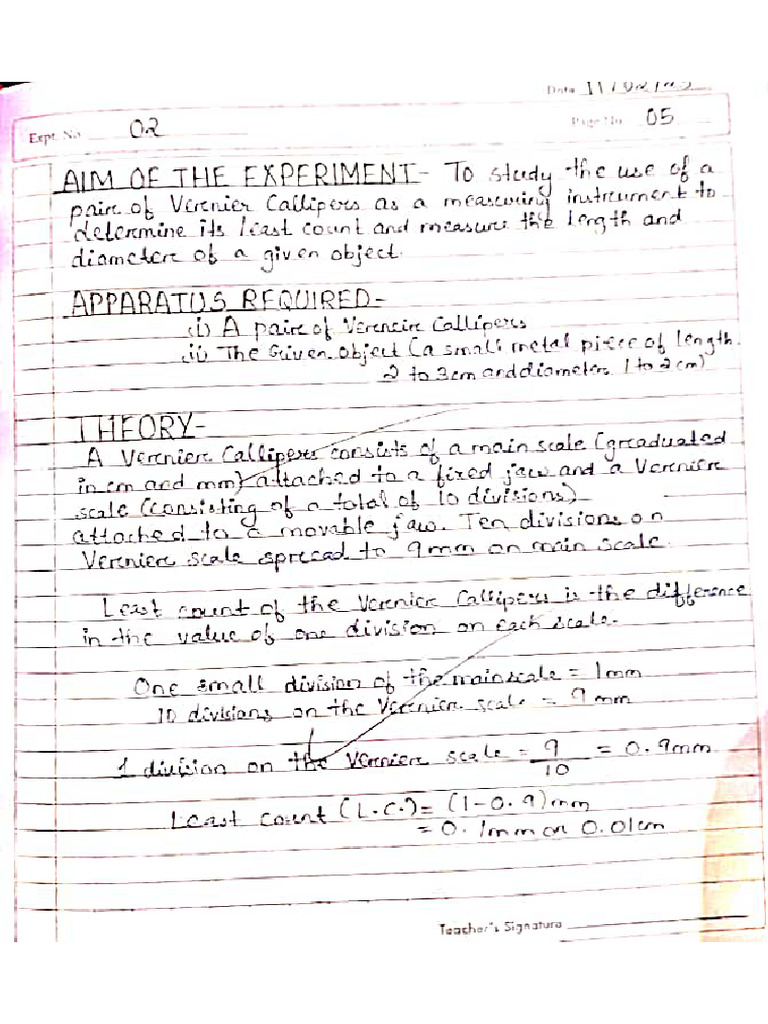 Date 11/02/23
Expt. No. 02
Page No. 05
AIM OF THE EXPERIMENT- To study the use of a
paire of Vernier Callipers as a measuring instrument to
determine its least count and measure the length and
diameter of a given object.
APPARATUS REQUIRED-
(i) A paire of Verenire Callipers
ii) The Given object (a small metal piece of length
2 to 3cm and diameter 1 to 2cm)
THEORY-
A Vereniere Callipers consists of a main scale (graduated
in cm and mm) attached to a fixed jaw and a Vereniere
scale (consisting of a total of 10 divisions)
attached to a movable jaw. Ten divisions on
Vereniere scale spread to 9mm on main scale.
Least count of the Vereniere Callipers is the difference
in the value of one division on each scale.
One small division of the main scale = 1mm
10 divisions on the Vereniere scale = 9mm
1 division on the Vereniere scale = 9/10 = 0.9mm
Least count (L.C.) = (1-0.9)mm
= 0.1mm or 0.01cm
Teacher's Signature